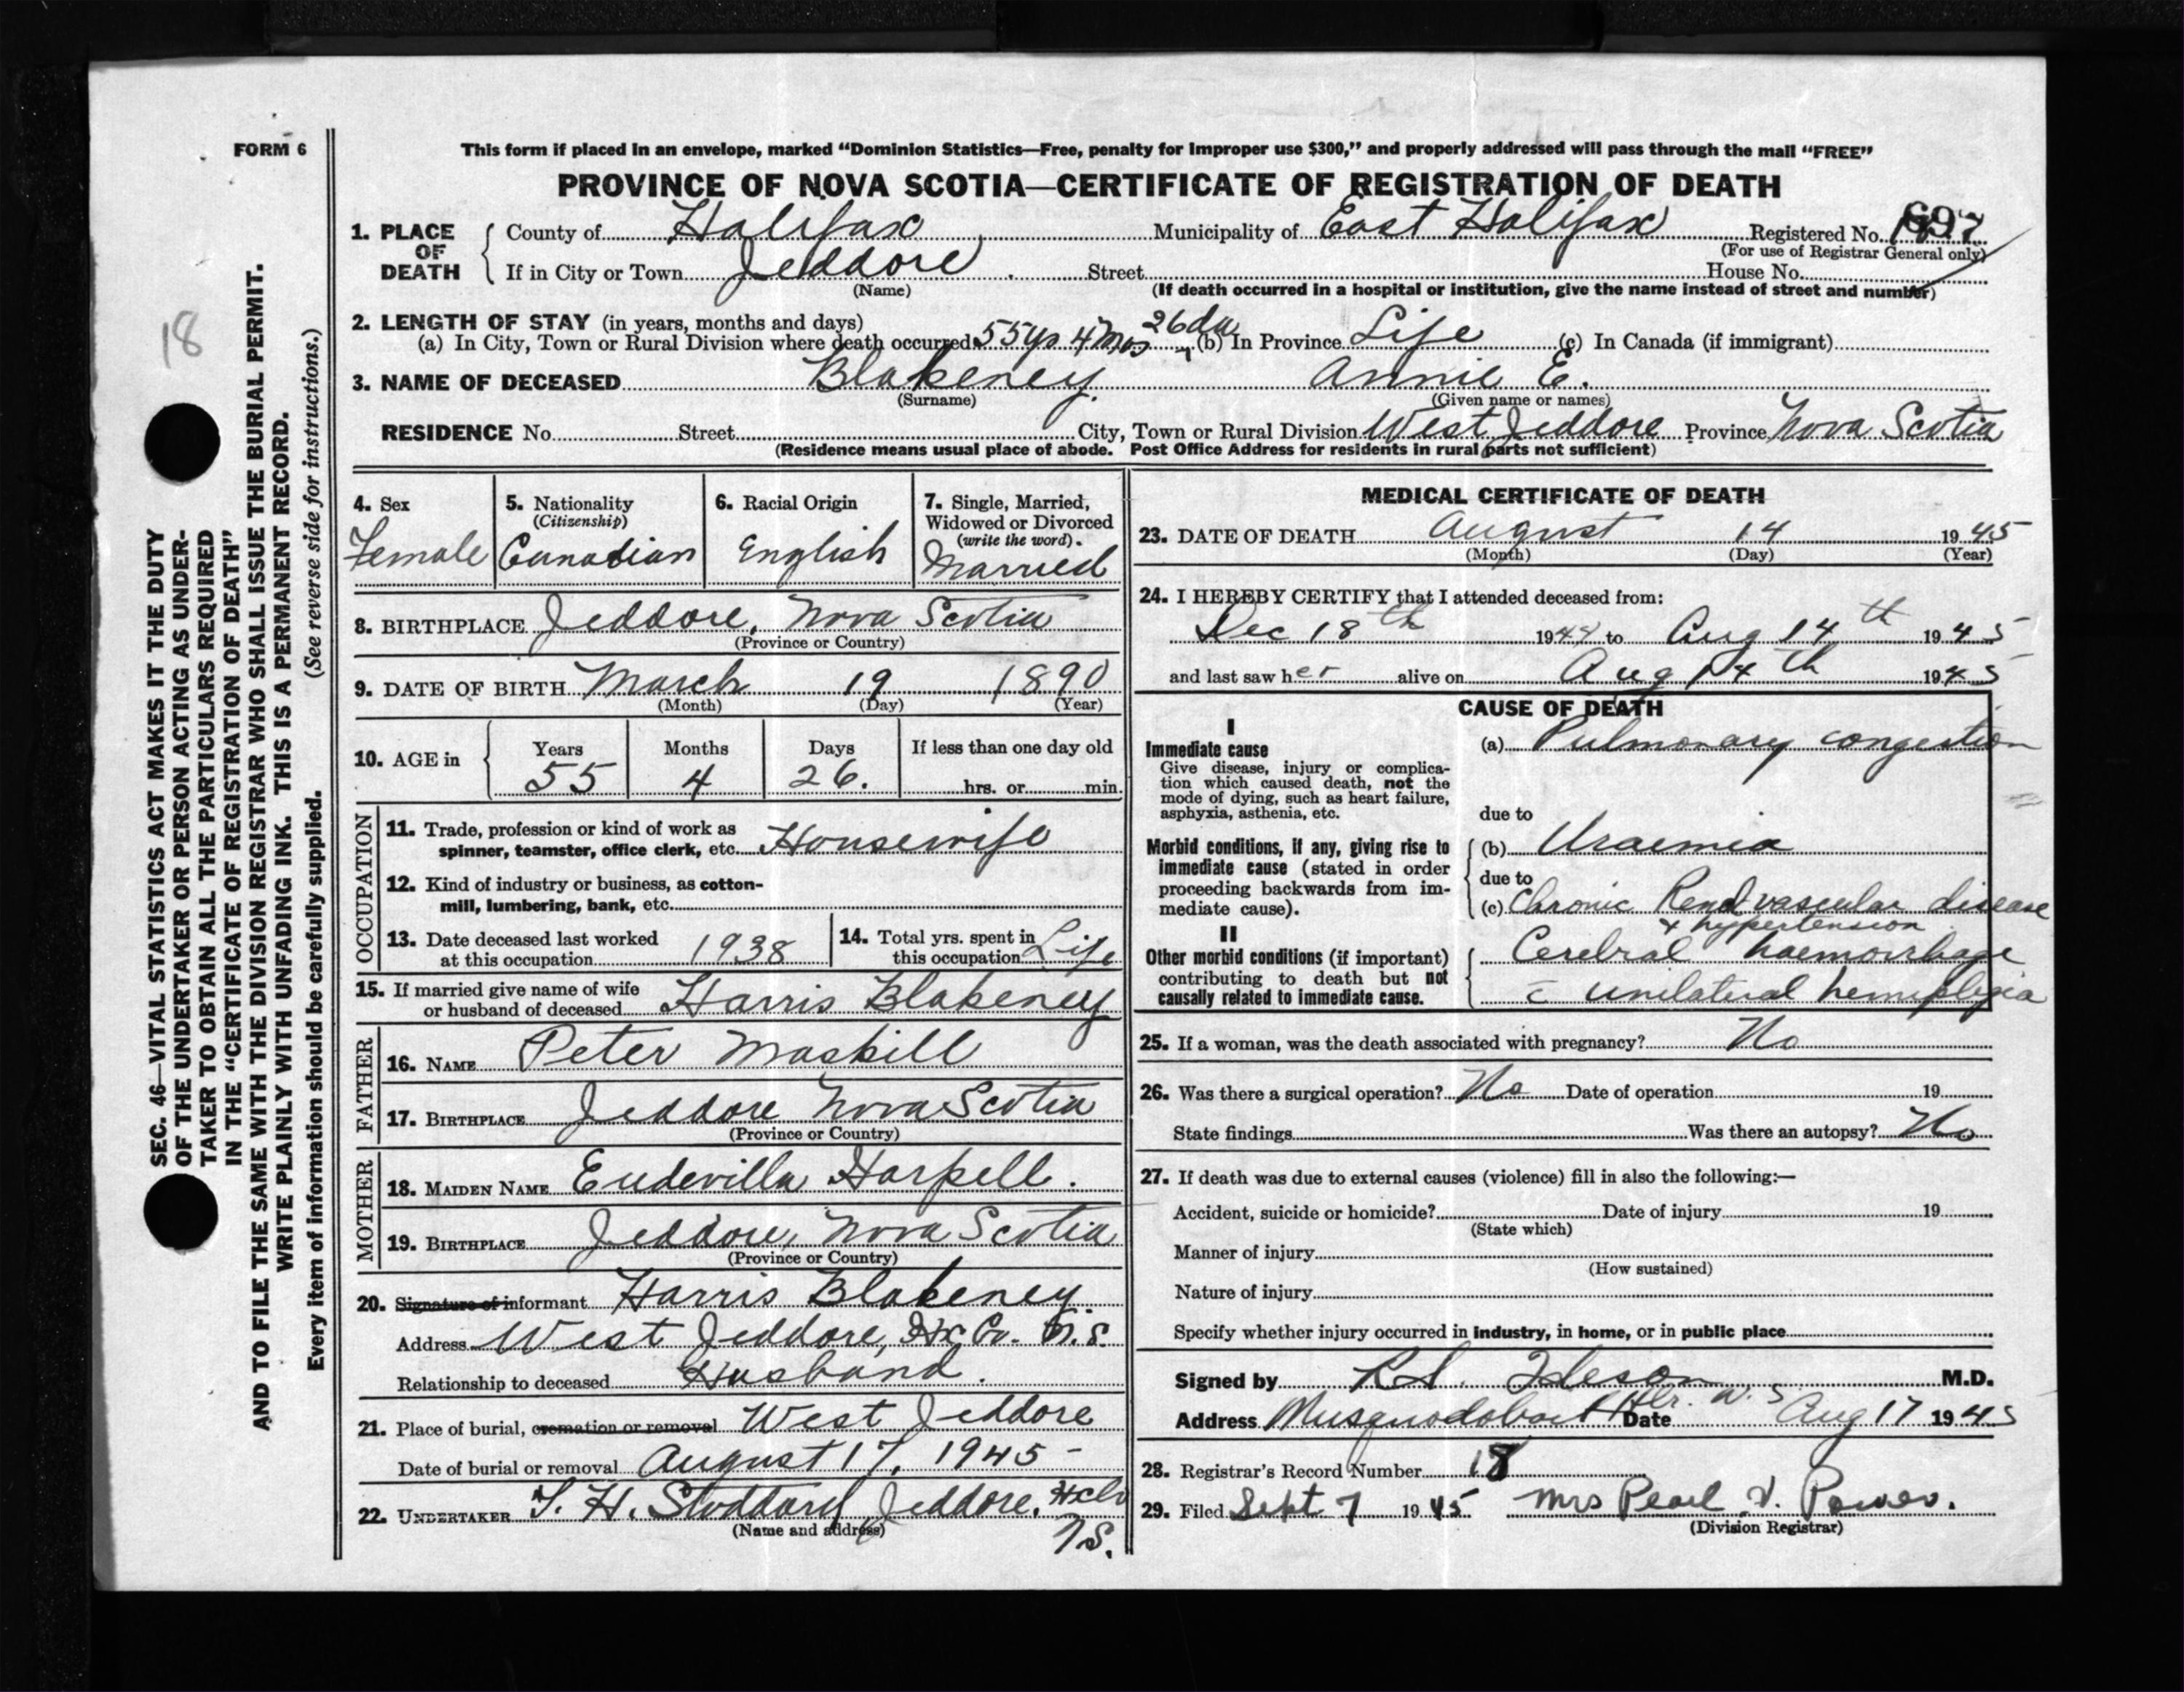 FORM 6
This form if placed in an envelope, marked "Dominion Statistics—Free, penalty for improper use $300," and properly addressed will pass through the mail "FREE"
PROVINCE OF NOVA SCOTIA—CERTIFICATE OF REGISTRATION OF DEATH
1. PLACE OF DEATH County of Halifax Municipality of East Halifax Registered No.
(For use of Registrar General only)
If in City or Town Jeddore Street House No.
(Name) (If death occurred in a hospital or institution, give the name instead of street and number)
2. LENGTH OF STAY (in years, months and days)
(a) In City, Town or Rural Division where death occurred 55 yrs 4 Mos 26 da (b) In Province Life (c) In Canada (if immigrant)
3. NAME OF DECEASED Blakeney Annie E.
(Surname) (Given name or names)
RESIDENCE No. Street City, Town or Rural Division West Jeddore Province Nova Scotia
(Residence means usual place of abode. Post Office Address for residents in rural parts not sufficient)
4. Sex Female
5. Nationality (Citizenship) Canadian
6. Racial Origin English
7. Single, Married, Widowed or Divorced (write the word). Married
8. BIRTHPLACE Jeddore, Nova Scotia
(Province or Country)
9. DATE OF BIRTH March 19 1890
(Month) (Day) (Year)
10. AGE in Years Months Days If less than one day old
55 4 26. hrs. or min.
OCCUPATION
11. Trade, profession or kind of work as
spinner, teamster, office clerk, etc. Housewife
12. Kind of industry or business, as cotton-
mill, lumbering, bank, etc.
13. Date deceased last worked at this occupation 1938
14. Total yrs. spent in this occupation Life
15. If married give name of wife
or husband of deceased Harris Blakeney
FATHER
16. NAME Peter Maskill
17. BIRTHPLACE Jeddore Nova Scotia
(Province or Country)
MOTHER
18. MAIDEN NAME Eudevilla Harpell.
19. BIRTHPLACE Jeddore, Nova Scotia
(Province or Country)
20. Signature of informant Harris Blakeney.
Address West Jeddore, Hx Co. N.S.
Relationship to deceased Husband.
21. Place of burial, cremation or removal West Jeddore
Date of burial or removal August 17, 1945 -
22. UNDERTAKER T. H. Stoddard, Jeddore, Hx Co
(Name and address) NS.
MEDICAL CERTIFICATE OF DEATH
23. DATE OF DEATH August 14 1945
(Month) (Day) (Year)
24. I HEREBY CERTIFY that I attended deceased from:
Dec 18th 1944 to Aug 14th 1945
and last saw her alive on Aug 14th 1945
CAUSE OF DEATH
I
Immediate cause (a) Pulmonary congestion
Give disease, injury or complica-
tion which caused death, not the
mode of dying, such as heart failure,
asphyxia, asthenia, etc.
due to
Morbid conditions, if any, giving rise to (b) Uraemia
immediate cause (stated in order due to
proceeding backwards from im-
mediate cause). (c) Chronic Renal vascular disease
& hypertension
II
Other morbid conditions (if important) Cerebral haemorrhage
contributing to death but not
causally related to immediate cause. c̄ unilateral hemiplegia
25. If a woman, was the death associated with pregnancy? No
26. Was there a surgical operation? No Date of operation 19
State findings Was there an autopsy? No
27. If death was due to external causes (violence) fill in also the following:—
Accident, suicide or homicide? Date of injury 19
(State which)
Manner of injury
(How sustained)
Nature of injury
Specify whether injury occurred in industry, in home, or in public place
Signed by M.D.
Address Musquodoboit Hbr. N.S Date Aug 17 1945
28. Registrar's Record Number 18
29. Filed Sept 7 1945 Mrs Pearl V. Power.
(Division Registrar)
18
SEC. 46—VITAL STATISTICS ACT MAKES IT THE DUTY
OF THE UNDERTAKER OR PERSON ACTING AS UNDER-
TAKER TO OBTAIN ALL THE PARTICULARS REQUIRED
IN THE "CERTIFICATE OF REGISTRATION OF DEATH"
AND TO FILE THE SAME WITH THE DIVISION REGISTRAR WHO SHALL ISSUE THE BURIAL PERMIT.
WRITE PLAINLY WITH UNFADING INK. THIS IS A PERMANENT RECORD.
Every item of information should be carefully supplied. (See reverse side for instructions.)